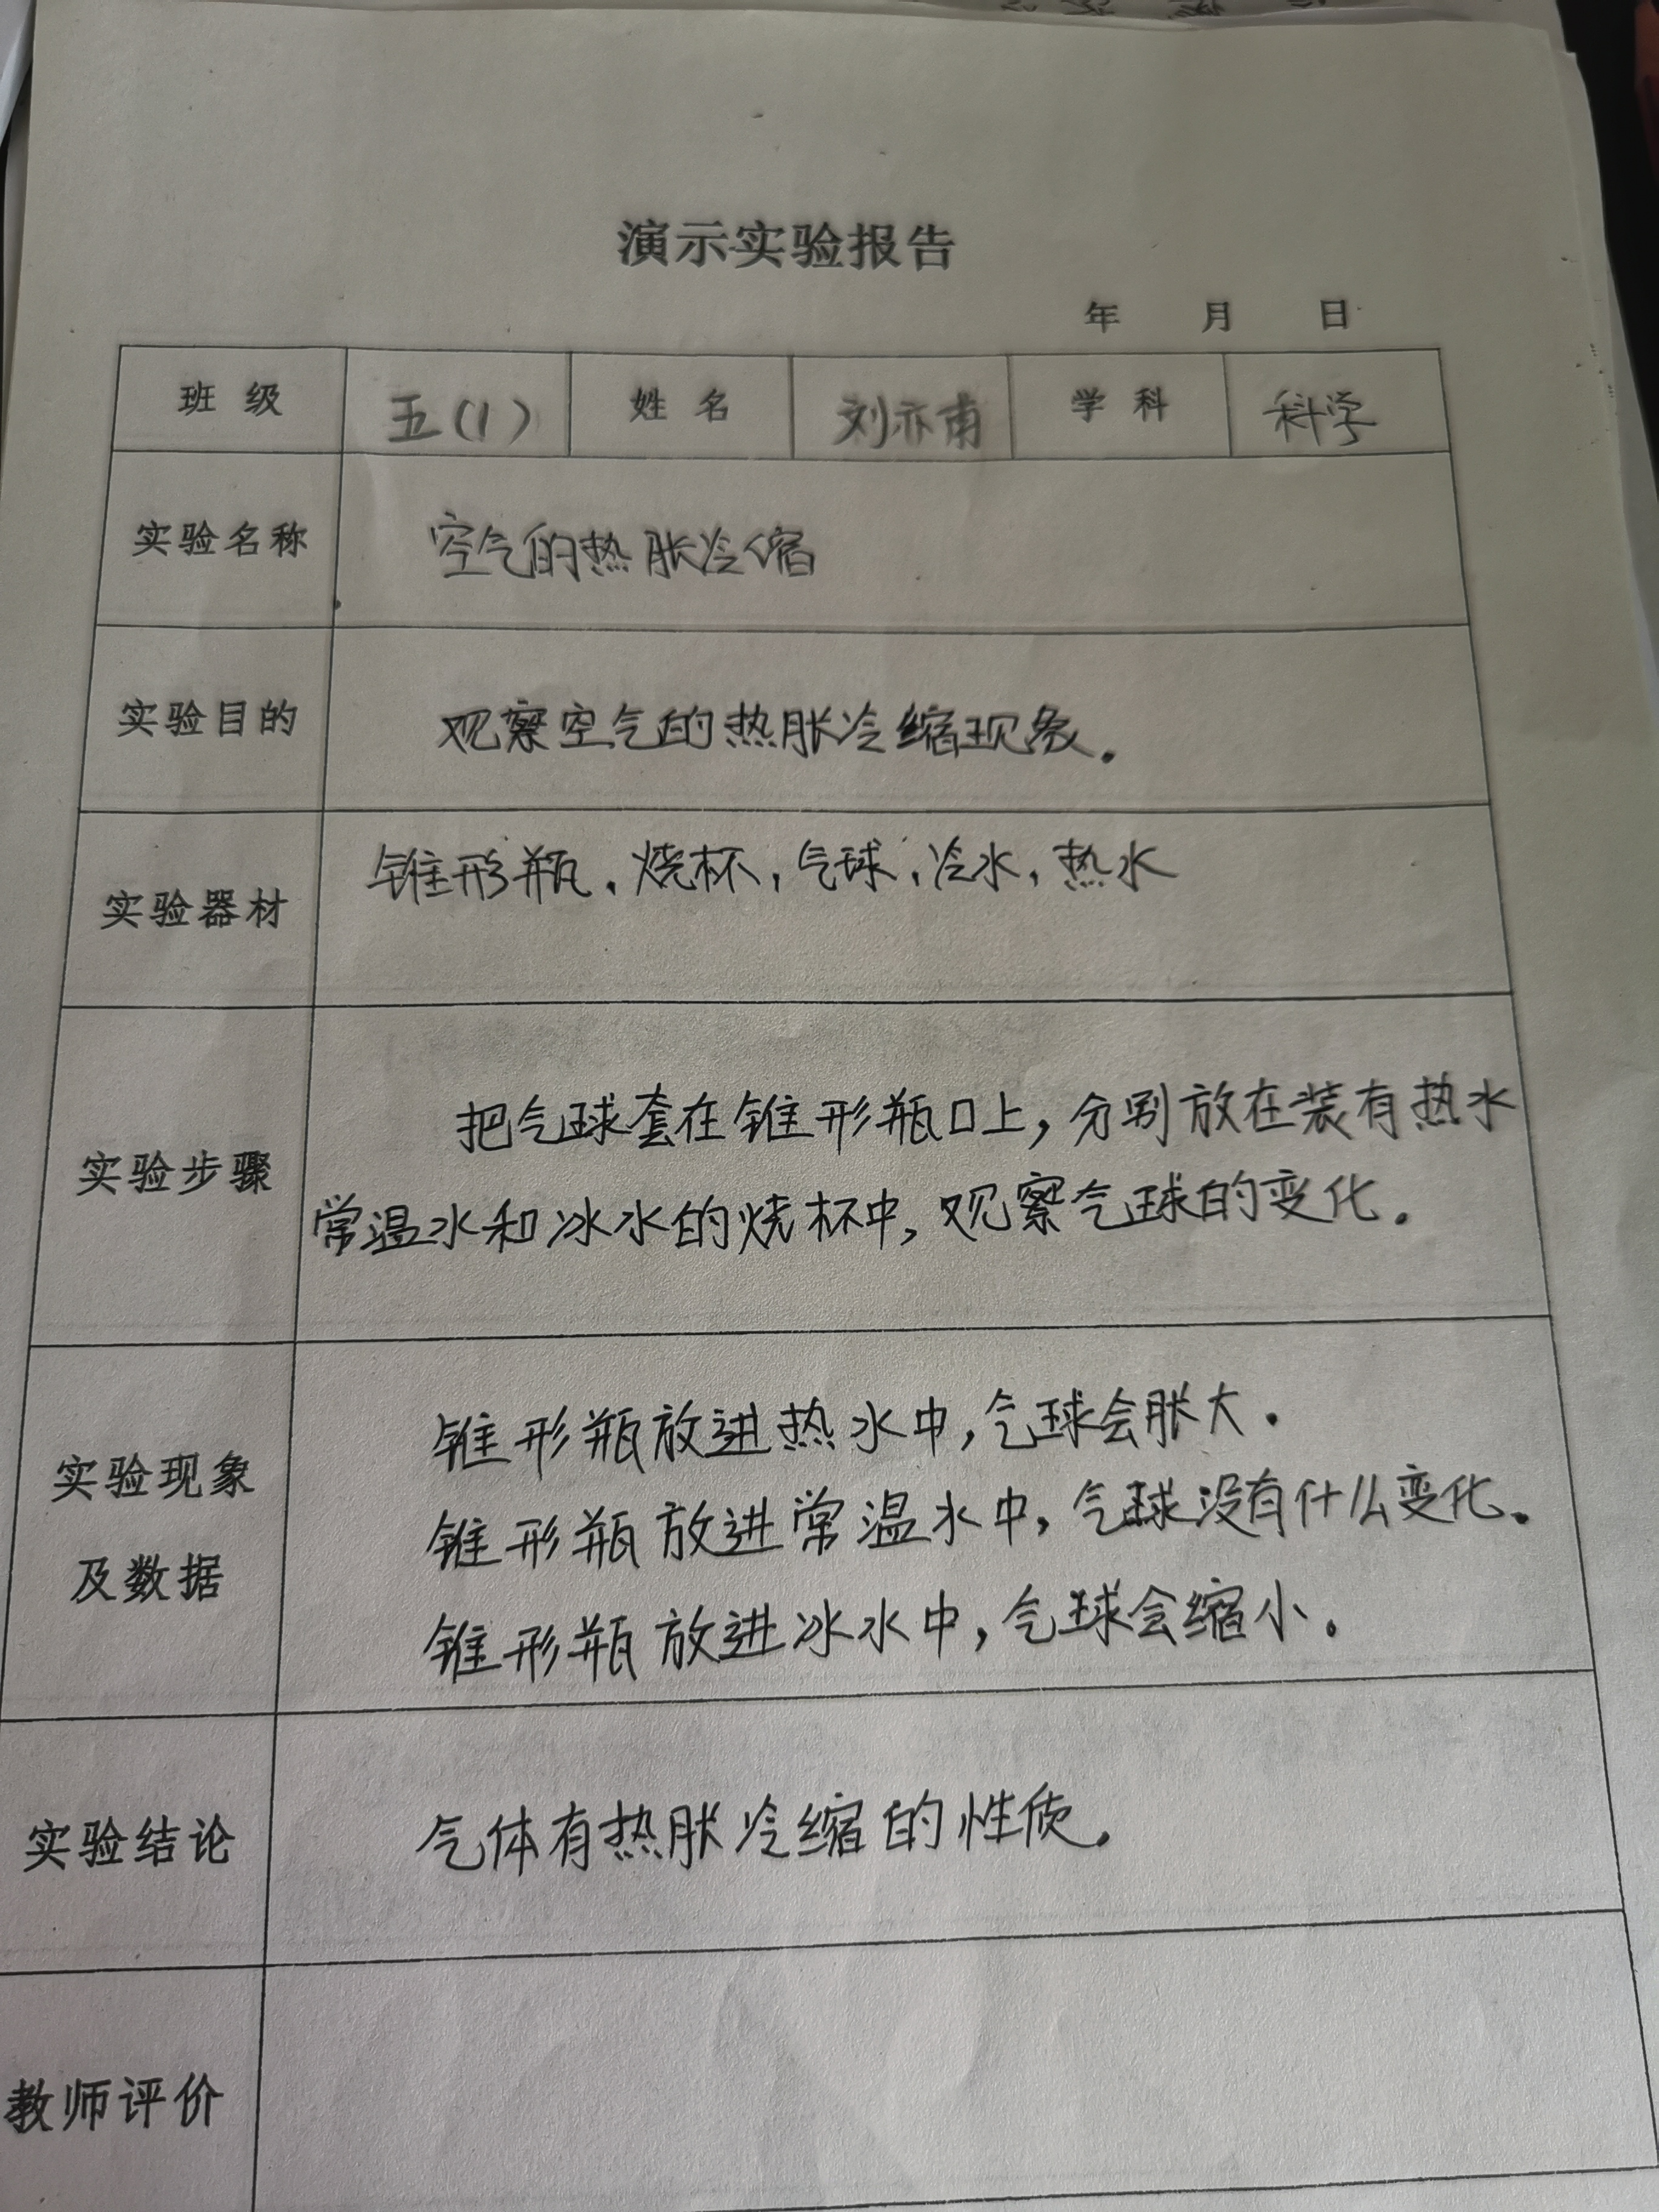 演示实验报告
年 月 日
班 级 五(1) 姓 名 刘亦甫 学 科 科学
实验名称 空气的热胀冷缩
实验目的 观察空气的热胀冷缩现象.
实验器材 锥形瓶,烧杯,气球,冷水,热水
把气球套在锥形瓶口上,分别放在装有热水
实验步骤
常温水和冰水的烧杯中,观察气球的变化.
锥形瓶放进热水中,气球会胀大.
实验现象
锥形瓶放进常温水中,气球没有什么变化.
及数据
锥形瓶放进冰水中,气球会缩小.
实验结论 气体有热胀冷缩的性质.
教师评价